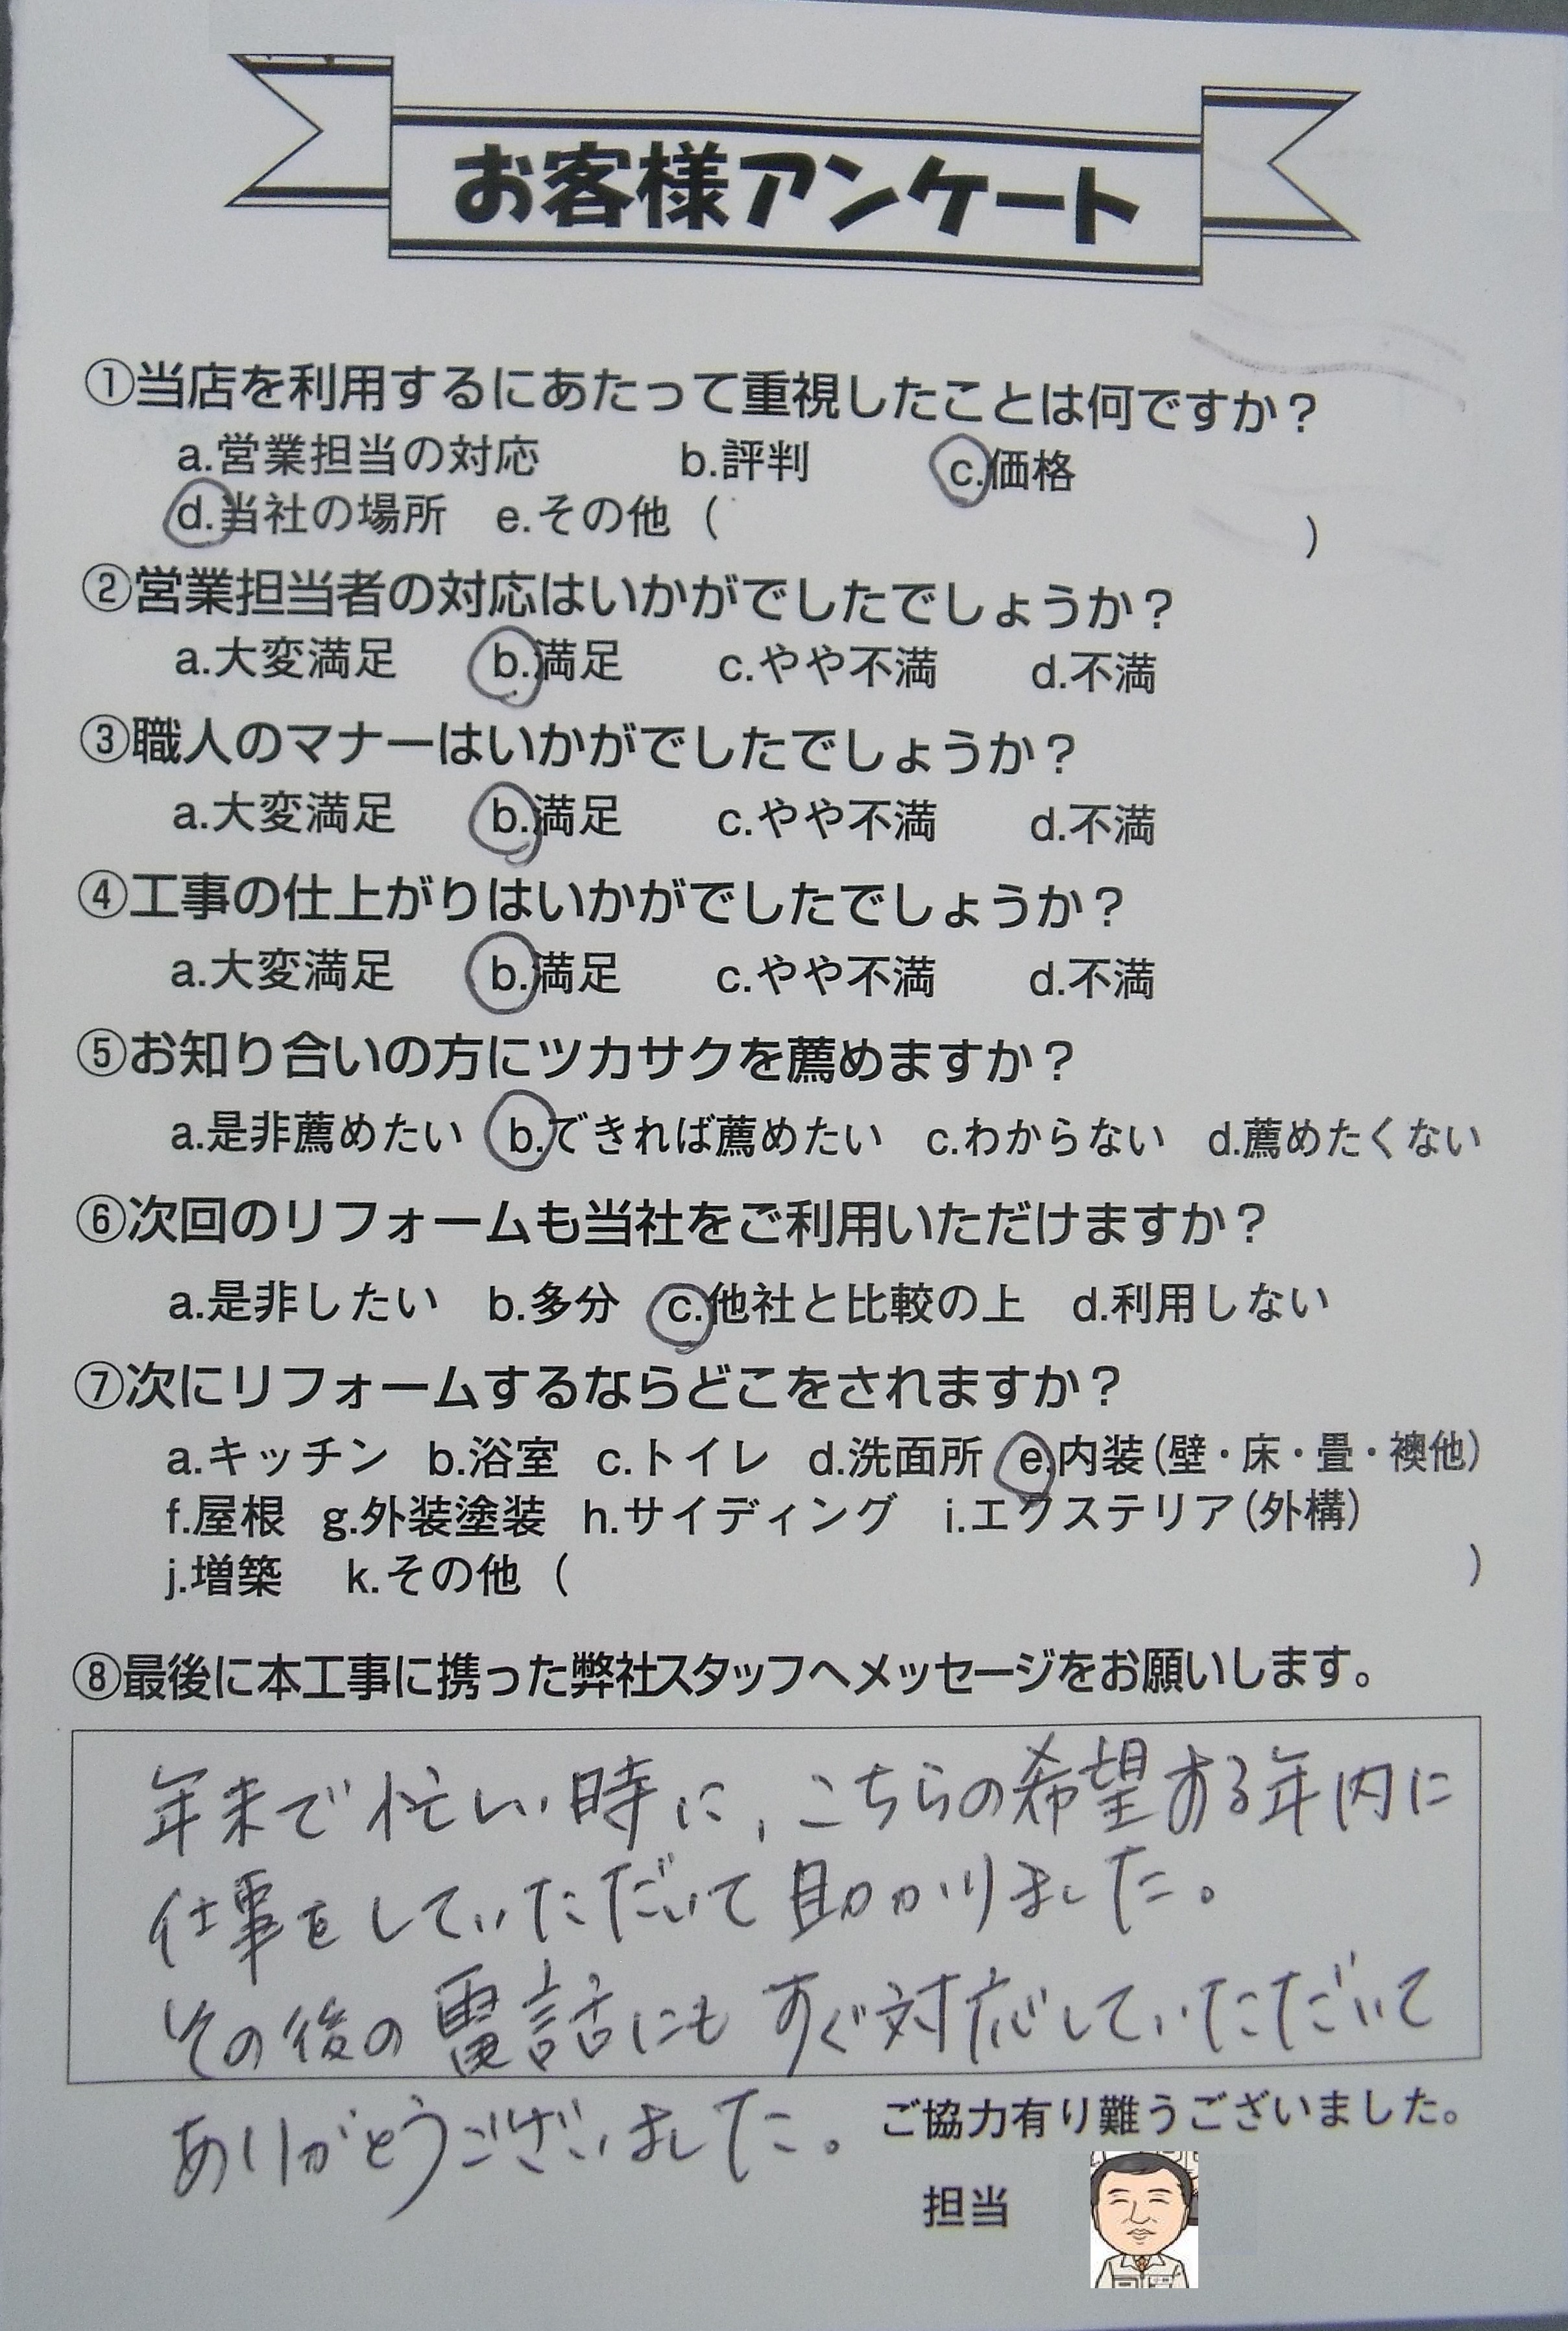 お客様アンケート
①当店を利用するにあたって重視したことは何ですか？
a.営業担当の対応 b.評判 c.価格
d.当社の場所 e.その他（ ）
②営業担当者の対応はいかがでしたでしょうか？
a.大変満足 b.満足 c.やや不満 d.不満
③職人のマナーはいかがでしたでしょうか？
a.大変満足 b.満足 c.やや不満 d.不満
④工事の仕上がりはいかがでしたでしょうか？
a.大変満足 b.満足 c.やや不満 d.不満
⑤お知り合いの方にツカサクを薦めますか？
a.是非薦めたい b.できれば薦めたい c.わからない d.薦めたくない
⑥次回のリフォームも当社をご利用いただけますか？
a.是非したい b.多分 c.他社と比較の上 d.利用しない
⑦次にリフォームするならどこをされますか？
a.キッチン b.浴室 c.トイレ d.洗面所 e.内装（壁・床・畳・襖他）
f.屋根 g.外装塗装 h.サイディング i.エクステリア（外構）
j.増築 k.その他（ ）
⑧最後に本工事に携った弊社スタッフへメッセージをお願いします。
年末で忙しい時に、こちらの希望する年内に
仕事をしていただいて助かりました。
その後の電話にもすぐ対応していただいて
ありがとうございました。
ご協力有り難うございました。
担当